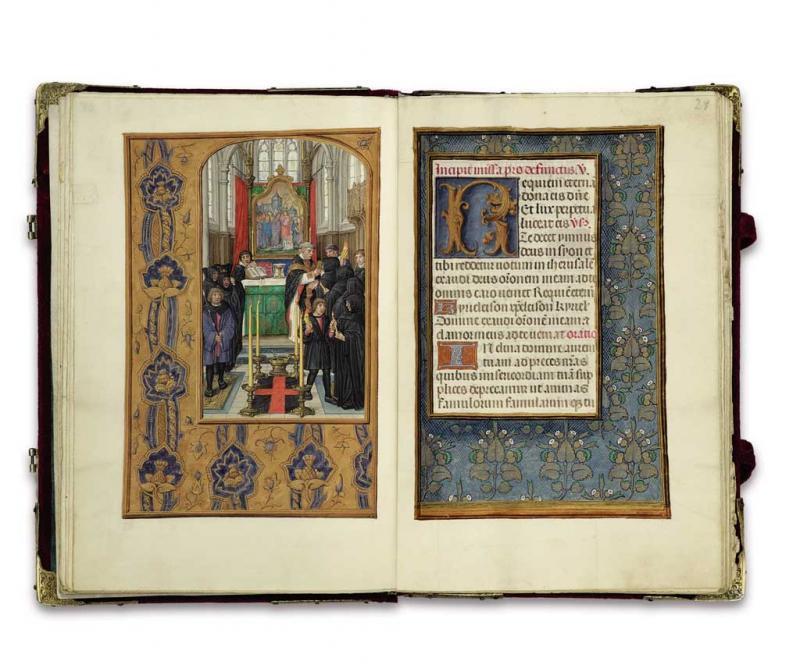 28
Incipit missa pro defunctis. V.
Requiem eterna
dona eis dñe
Et lux perpetua
luceat eis Vs.
Te decet ymnus
deus in syon et
tibi reddetur uotum in iherusalē
exaudi deus orōnem meam ad te
omnis caro ueniet Requiē etern
Kyrieleison xpeleison kyriel
Domine exaudi orōnē meam z
clamor meus ad te ueniat oratio
Inclina domine aurem
tuam ad preces nr̄as
quibus misericordiam tuā sup
plices deprecamur ut animas
famulorum famularumqz tu